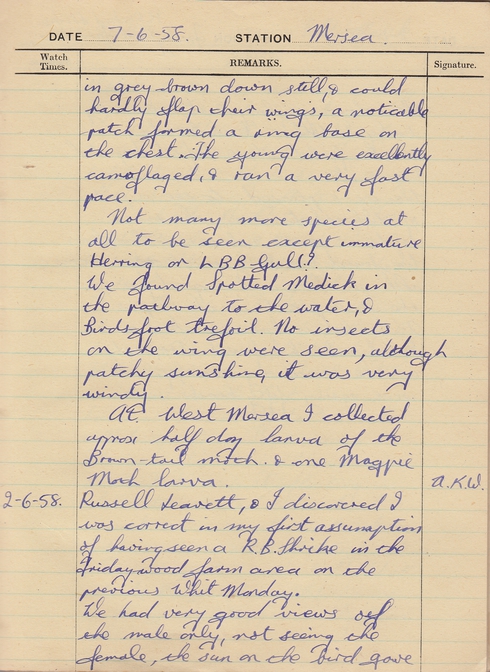 DATE 7-6-58. STATION Mersea.
Watch Times. REMARKS. Signature.
in grey brown down still, & could
hardly flap their wings, a noticable
patch formed a ring base on
the chest. The young were excellently
camoflaged, & ran a very fast
pace.
Not many more species at
all to be seen except immature
Herring or LBB Gull!?
We found Spotted Medick in
the pathway to the water, &
Birdsfoot trefoil. No insects
on the wing were seen, although
patchy sunshine, it was very
windy.
At West Mersea I collected
approx half doz larva of the
Brown-tail moth. & one Magpie
Moth larva. A.K.W.
2-6-58. Russell Leavett, & I discovered I
was correct in my first assumption
of having seen a R.B. Shrike in the
Fridaywood farm area on the
previous Whit Monday.
We had very good views of
the male only, not seeing the
female, the sun on the bird gave